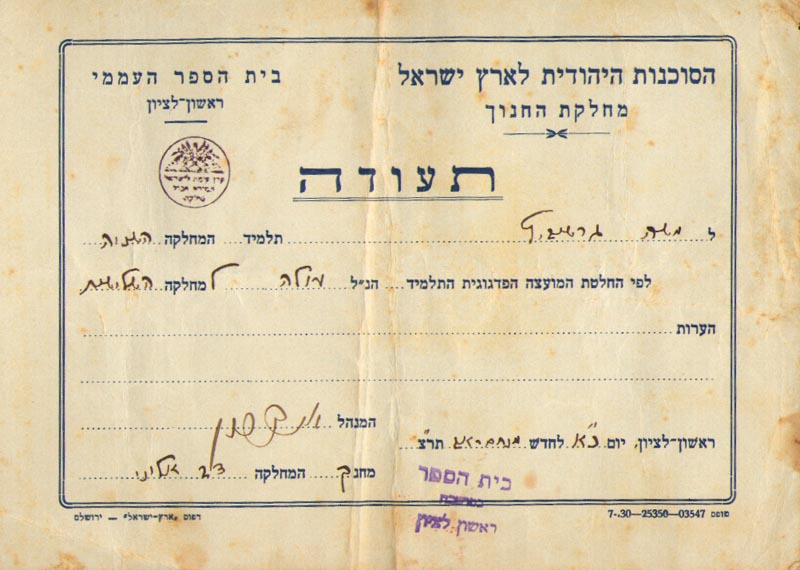 הסוכנות היהודית לארץ ישראל
מחלקת החנוך
בית הספר העממי
ראשון-לציון
תעודה
ל משה תלמיד המחלקה השניה
לפי החלטת המועצה הפדגוגית התלמיד הנ"ל עולה למחלקה השלישית
הערות
המנהל
ראשון-לציון, יום כ"א לחדש מנחם אב תר"צ
מחנך המחלקה דב
בית הספר
ראשון לציון
טופס 03547—25350—7.-30
דפוס „ארץ-ישראל" — ירושלם